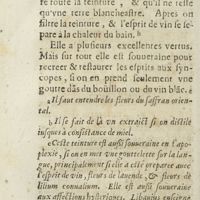 re toute la teinture, & qu'il ne reste
qu'vne terre blancheastre. Apres on
filtre la teinture, & l'esprit de vin se se-
pare à la chaleur du bain. b
Elle a plusieurs excellentes vertus.
Mais sur tout elle est souueraine pour
recreer & restaurer les esprits aux syn-
copes, si on en prend seulement vne
goutte dãs du boüillon ou du vin blãc. c
a Il faut entendre les fleurs du saffran orien-
tal.
b Il se fait de là vn extraict si on distile
iusques à consistance de miel.
c Ceste teinture est aussi souueraine en l'apo-
plexie, si on en met vne gouttelette sur la lan-
gue, principalement si elle a esté preparee auec
l'esprit de vin, fleurs de lauende, & fleurs de
lilium conualium. Elle est aussi souueraine
aux affections hysteriques. Libauius enseigne